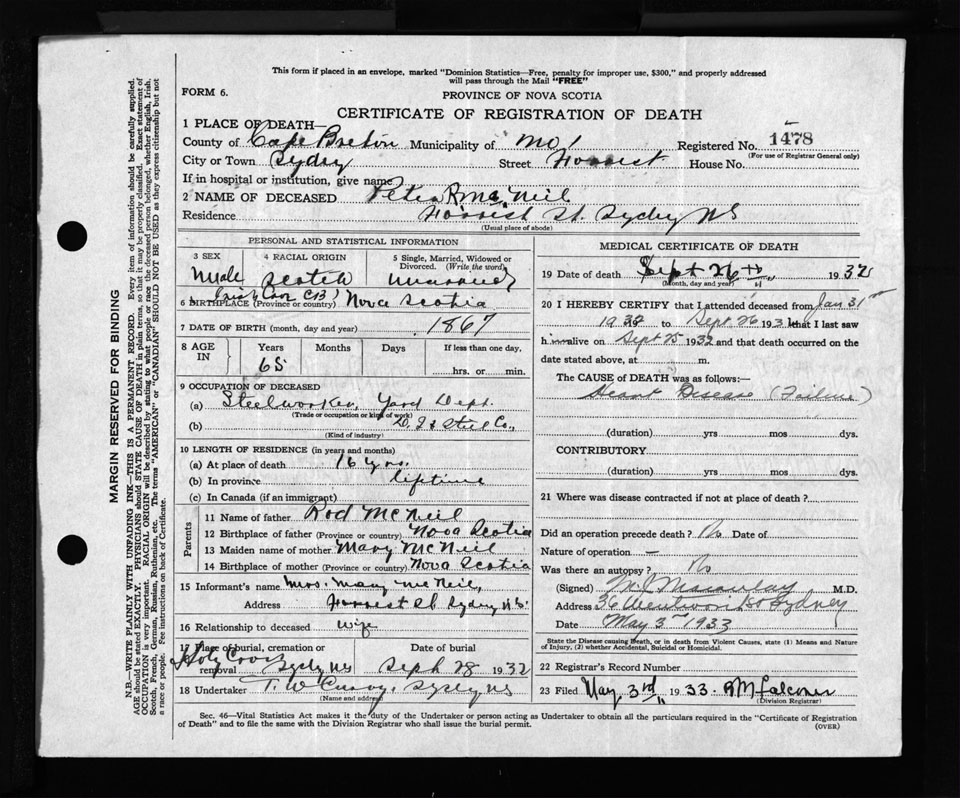 This form if placed in an envelope, marked "Dominion Statistics—Free, penalty for improper use, $300," and properly addressed
will pass through the Mail "FREE"
FORM 6.
PROVINCE OF NOVA SCOTIA
CERTIFICATE OF REGISTRATION OF DEATH
1 PLACE OF DEATH—
County of Cape Breton Municipality of Registered No. 1478
(For use of Registrar General only)
City or Town Sydney Street Forrest House No.
If in hospital or institution, give name
2 NAME OF DECEASED Peter R McNeil
Residence Forrest St. Sydney NS
(Usual place of abode)
PERSONAL AND STATISTICAL INFORMATION
3 SEX 4 RACIAL ORIGIN 5 Single, Married, Widowed or Divorced. (Write the word)
Male Scotch Married
Irish Cove CB
6 BIRTHPLACE (Province or country) Nova Scotia
7 DATE OF BIRTH (month, day and year) 1867
8 AGE IN Years Months Days If less than one day,
65 hrs. or min.
9 OCCUPATION OF DECEASED
(a) Steelworker, Yard Dept.
(Trade or occupation or kind of work)
(b) D. I & Steel Co.,
(Kind of industry)
10 LENGTH OF RESIDENCE (in years and months)
(a) At place of death 16 yrs.
(b) In province lifetime
(c) In Canada (if an immigrant)
Parents
11 Name of father Rod McNeil
12 Birthplace of father (Province or country) Nova Scotia
13 Maiden name of mother Mary McNeil
14 Birthplace of mother (Province or country) Nova Scotia
15 Informant's name Mrs. Mary McNeil,
Address Forrest St Sydney N.S.
16 Relationship to deceased Wife
17 Place of burial, cremation or removal Date of burial
Holy Cross Sydney NS Sept 28 1932
18 Undertaker T. W Curry, Sydney NS
(Name and address)
MEDICAL CERTIFICATE OF DEATH
19 Date of death Sept 26th, 1932
(Month, day and year)
20 I HEREBY CERTIFY that I attended deceased from Jan 31st
1932 to Sept 26 193 that I last saw
h alive on Sept 25 1932 and that death occurred on the
date stated above, at m.
The CAUSE of DEATH was as follows:—
Heart Disease (Failure)
(duration) yrs mos dys.
CONTRIBUTORY
(duration) yrs mos dys.
21 Where was disease contracted if not at place of death?
Did an operation precede death? No Date of
Nature of operation —
Was there an autopsy? No
(Signed) Macaulay M.D.
Address 36 Sydney
Date May 3rd 1933
State the Disease causing Death, or in death from Violent Causes, state (1) Means and Nature
of Injury, (2) whether Accidental, Suicidal or Homicidal.
22 Registrar's Record Number
23 Filed May 3rd 1933. RM Falconer
(Division Registrar)
Sec. 46—Vital Statistics Act makes it the duty of the Undertaker or person acting as Undertaker to obtain all the particulars required in the "Certificate of Registration
of Death" and to file the same with the Division Registrar who shall issue the burial permit.
(OVER)
MARGIN RESERVED FOR BINDING
N.B.—WRITE PLAINLY WITH UNFADING INK—THIS IS A PERMANENT RECORD. Every item of information should be carefully supplied.
AGE should be stated EXACTLY. PHYSICIANS should STATE CAUSE OF DEATH in plain terms, so that it may be properly classified. Exact statement of
OCCUPATION is very important. RACIAL ORIGIN will be described by stating to what people or race the deceased person belonged, whether English, Irish,
Scotch, French, German, Russian, Ruthenian, etc. The terms "AMERICAN" or "CANADIAN" SHOULD NOT BE USED as they express citizenship but not
a race or people. Fee instructions on back of Certificate.